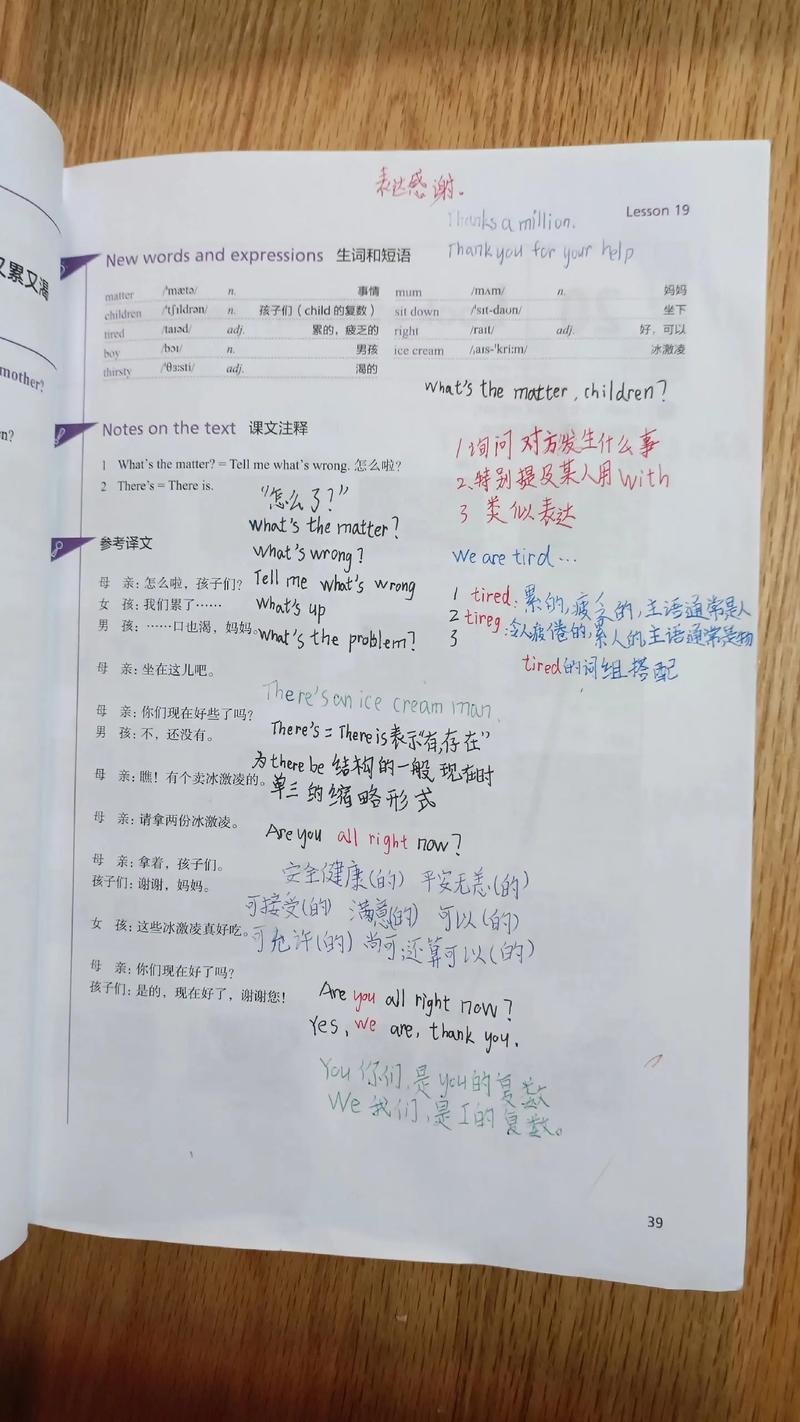 又累又渴
mother?
n?
表达感谢。
Lesson 19
Thanks a million.
Thank you for your help
New words and expressions 生词和短语
matter /ˈmætə/ n. 事情
children /ˈtʃɪldrən/ n. 孩子们（child 的复数）
tired /taɪəd/ adj. 累的，疲乏的
boy /bɔɪ/ n. 男孩
thirsty /ˈθɜːsti/ adj. 渴的
mum /mʌm/ n. 妈妈
sit down /ˈsɪt-daʊn/ 坐下
right /raɪt/ adj. 好，可以
ice cream /ˌaɪs-ˈkriːm/ 冰激凌
What's the matter, children?
Notes on the text 课文注释
1 What's the matter? = Tell me what's wrong. 怎么啦?
2 There's = There is.
1 询问对方发生什么事
2.特别提及某人用with
3 类似表达
"怎么了?"
What's the matter?
What's wrong?
Tell me what's wrong
What's up
What's the problem?
We are tird...
1 tired: 累的,疲乏的,主语通常是人
2 tireg:令人疲倦的,累人的主语通常是物
3
tired的词组搭配
参考译文
母 亲：怎么啦，孩子们？
女 孩：我们累了……
男 孩：……口也渴，妈妈。
母 亲：坐在这儿吧。
母 亲：你们现在好些了吗？
男 孩：不，还没有。
母 亲：瞧！有个卖冰激凌的。
母 亲：请拿两份冰激凌。
母 亲：拿着，孩子们。
孩子们：谢谢，妈妈。
女 孩：这些冰激凌真好吃。
母 亲：你们现在好了吗？
孩子们：是的，现在好了，谢谢您！
There's an ice cream man.
There's = There is 表示"有,存在"
为there be 结构的一般现在时
单三的缩略形式
Are you all right now?
安全健康(的) 平安无恙(的)
可接受(的) 满意(的) 可以(的)
可允许(的) 尚可,还算可以(的)
Are you all right now?
Yes, we are, thank you.
You 你们,是you的复数
We 我们,是I的复数。
39